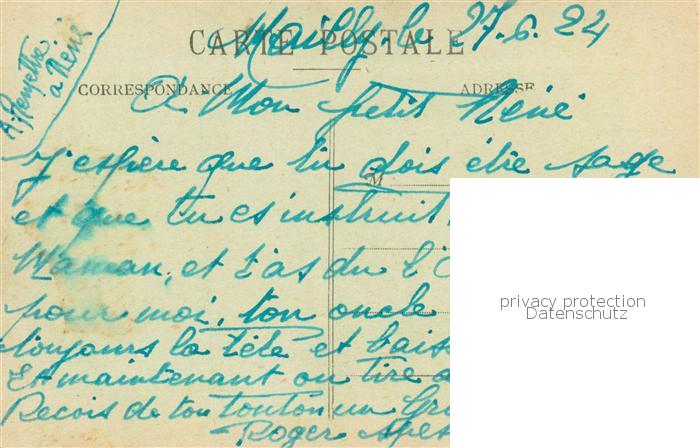 Mailly. le 27.6.24
CARTE POSTALE
A. Remettre
à René
CORRESPONDANCE ADRESSE
A Mon petit René
J'espère que tu dois être sage
M
et que tu es instruit
Maman, et t'as du l'
pour moi, ton oncle
toujours la tête et baiss
Et maintenant on tire
Recois de ton tonton un Gr
Roger
privacy protection
Datenschutz